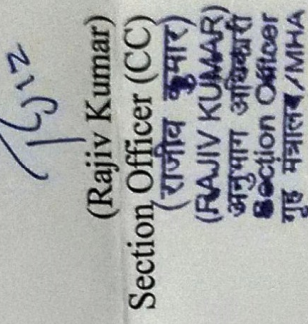 (Rajiv Kumar)
Section Officer (CC)
(राजीव कुमार)
(RAJIV KUMAR)
अनुभाग अधिकारी
Section Officer
गृह मंत्रालय/MHA